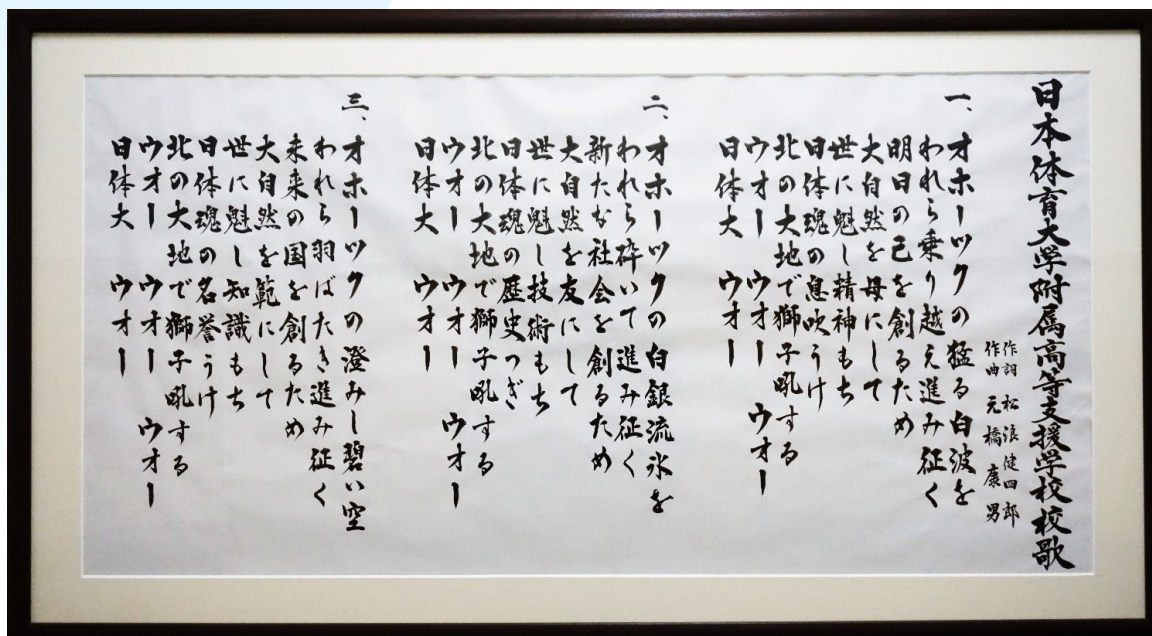 日本体育大学附属高等支援学校校歌
作詞 松浪健四郎
作曲 元橋康男
一、オホーツクの猛る白波を
われら乗り越え進み征く
明日の己を創るため
大自然を母にして
世に魁し精神もち
日体魂の息吹うけ
北の大地で獅子吼する
ウオー ウオー ウオー
日体大 ウオー
二、オホーツクの白銀流氷を
われら砕いて進み征く
新たな社会を創るため
大自然を友にして
世に魁し技術もち
日体魂の歴史つぎ
北の大地で獅子吼する
ウオー ウオー ウオー
日体大 ウオー
三、オホーツクの澄みし碧い空
われら羽ばたき進み征く
未来の国を創るため
大自然を範にして
世に魁し知識もち
日体魂の名誉うけ
北の大地で獅子吼する
ウオー ウオー ウオー
日体大 ウオー